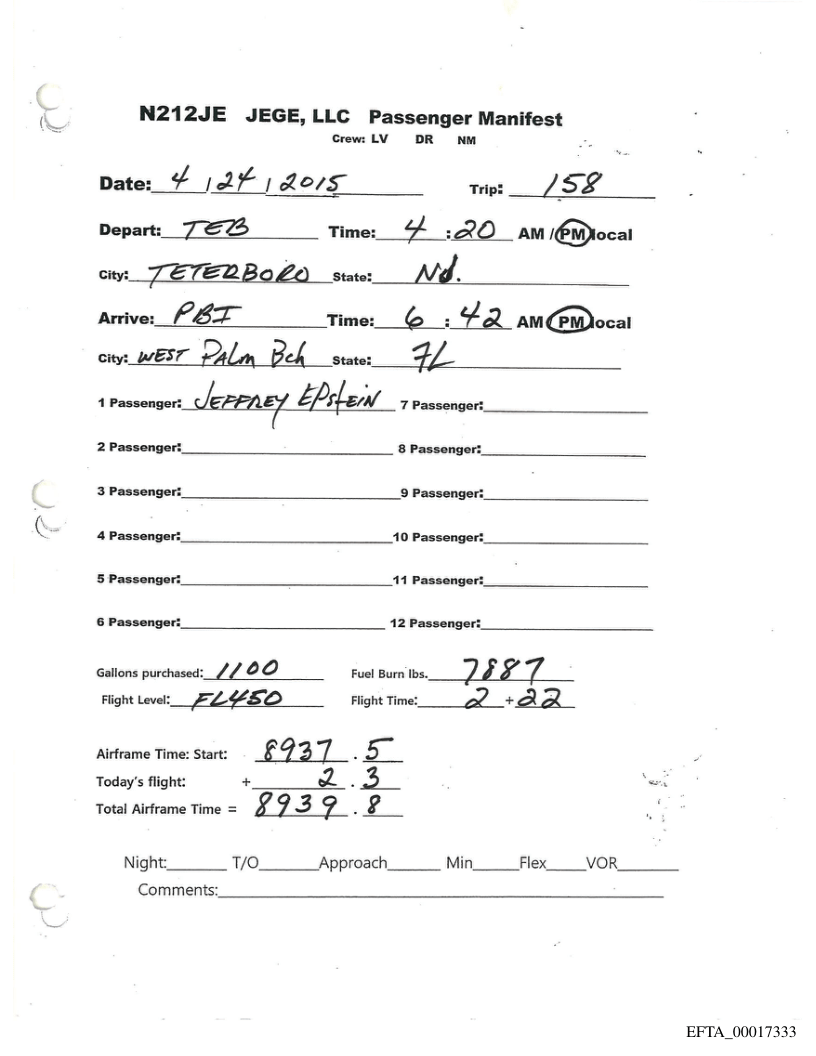 N212JE JEGE, LLC Passenger Manifest
Crew: LV DR NM
Date: 4 / 24 / 2015 Trip: 158
Depart: TEB Time: 4 : 20 AM / PM local
City: TETERBORO State: NJ.
Arrive: PBI Time: 6 : 42 AM / PM local
City: WEST PALM Bch State: FL
1 Passenger: JEFFREY EPstEIN 7 Passenger:
2 Passenger: 8 Passenger:
3 Passenger: 9 Passenger:
4 Passenger: 10 Passenger:
5 Passenger: 11 Passenger:
6 Passenger: 12 Passenger:
Gallons purchased: 1100 Fuel Burn lbs. 7887
Flight Level: FL450 Flight Time: 2 + 22
Airframe Time: Start: 8937 . 5
Today's flight: + 2 . 3
Total Airframe Time = 8939 . 8
Night: T/O Approach Min Flex VOR
Comments:
EFTA_00017333